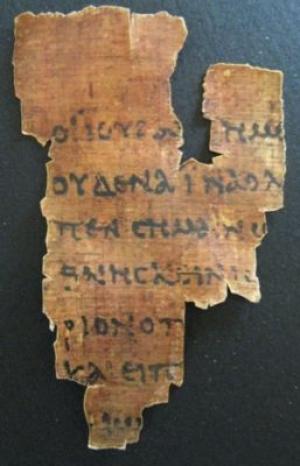 ΟΙ ΙΟΥΔΑ ΗΜ
ΟΥΔΕΝΑ ΙΝΑ Ο Λ
ΠΕΝ CΗΜΑΙΝΩ
ΘΝΗCΚΕΙΝ Ι
ΡΙΟΝ Ο Π
ΚΑΙ ΕΙΠ